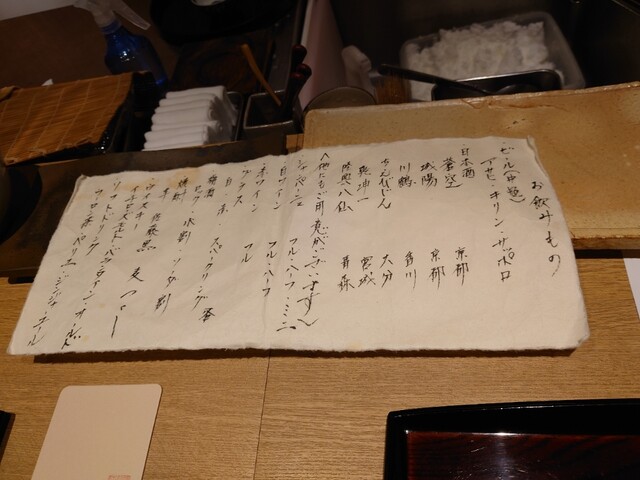 お飲みもの
ビール(中瓶)
アサヒ・キリン・サッポロ
日本酒
蒼空 京都
城陽 京都
川鶴 香川
ちえびじん 大分
乾坤一 宮城
陸奥八仙 青森
〈他にもご用意がございます〉
シャンパーニュ フル・ハーフ・ミニ
白ワイン フル・ハーフ
赤ワイン フル
グラス
白・赤・スパークリング
焼酎
ロック・水割・ソーダ割
芋 佐藤黒
ウイスキー
ソフトドリンク
ウーロン茶・ペリエ・ジンジャエール